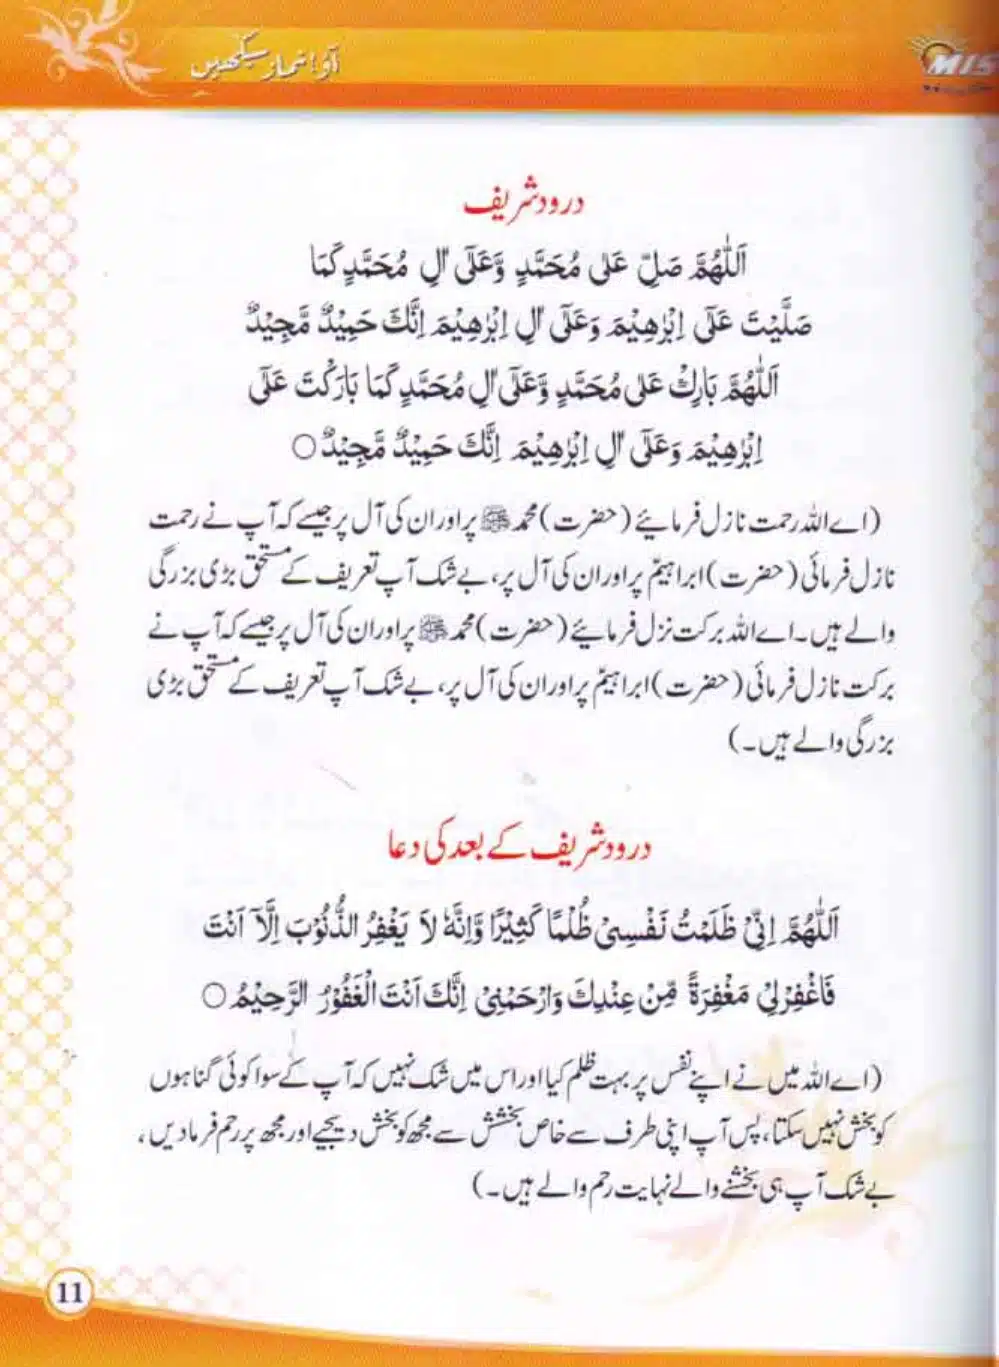 آؤ! نماز سیکھیں
MIS
درود شریف
اَللّٰهُمَّ صَلِّ عَلٰى مُحَمَّدٍ وَّعَلٰٓى اٰلِ مُحَمَّدٍ كَمَا
صَلَّيْتَ عَلٰٓى اِبْرٰهِيْمَ وَعَلٰٓى اٰلِ اِبْرٰهِيْمَ اِنَّكَ حَمِيْدٌ مَّجِيْدٌ
اَللّٰهُمَّ بَارِكْ عَلٰى مُحَمَّدٍ وَّعَلٰٓى اٰلِ مُحَمَّدٍ كَمَا بَارَكْتَ عَلٰٓى
اِبْرٰهِيْمَ وَعَلٰٓى اٰلِ اِبْرٰهِيْمَ اِنَّكَ حَمِيْدٌ مَّجِيْدٌ ○
(اے اللہ رحمت نازل فرمائیے (حضرت) محمد ﷺ پر اور ان کی آل پر جیسے کہ آپ نے رحمت
نازل فرمائی (حضرت) ابراہیمؑ پر اور ان کی آل پر، بے شک آپ تعریف کے مستحق بڑی بزرگی
والے ہیں۔ اے اللہ برکت نزل فرمائیے (حضرت) محمد ﷺ پر اور ان کی آل پر جیسے کہ آپ نے
برکت نازل فرمائی (حضرت) ابراہیمؑ پر اور ان کی آل پر، بے شک آپ تعریف کے مستحق بڑی
بزرگی والے ہیں۔)
درود شریف کے بعد کی دعا
اَللّٰهُمَّ اِنِّىْ ظَلَمْتُ نَفْسِىْ ظُلْمًا كَثِيْرًا وَّاِنَّهٗ لَا يَغْفِرُ الذُّنُوْبَ اِلَّآ اَنْتَ
فَاغْفِرْلِىْ مَغْفِرَةً مِّنْ عِنْدِكَ وَارْحَمْنِىْ اِنَّكَ اَنْتَ الْغَفُوْرُ الرَّحِيْمُ ○
(اے اللہ میں نے اپنے نفس پر بہت ظلم کیا اور اس میں شک نہیں کہ آپ کے سوا کوئی گناہوں
کو بخش نہیں سکتا، پس آپ اپنی طرف سے خاص بخشش سے مجھ کو بخش دیجیے اور مجھ پر رحم فرمادیں،
بے شک آپ ہی بخشنے والے نہایت رحم والے ہیں۔)
11